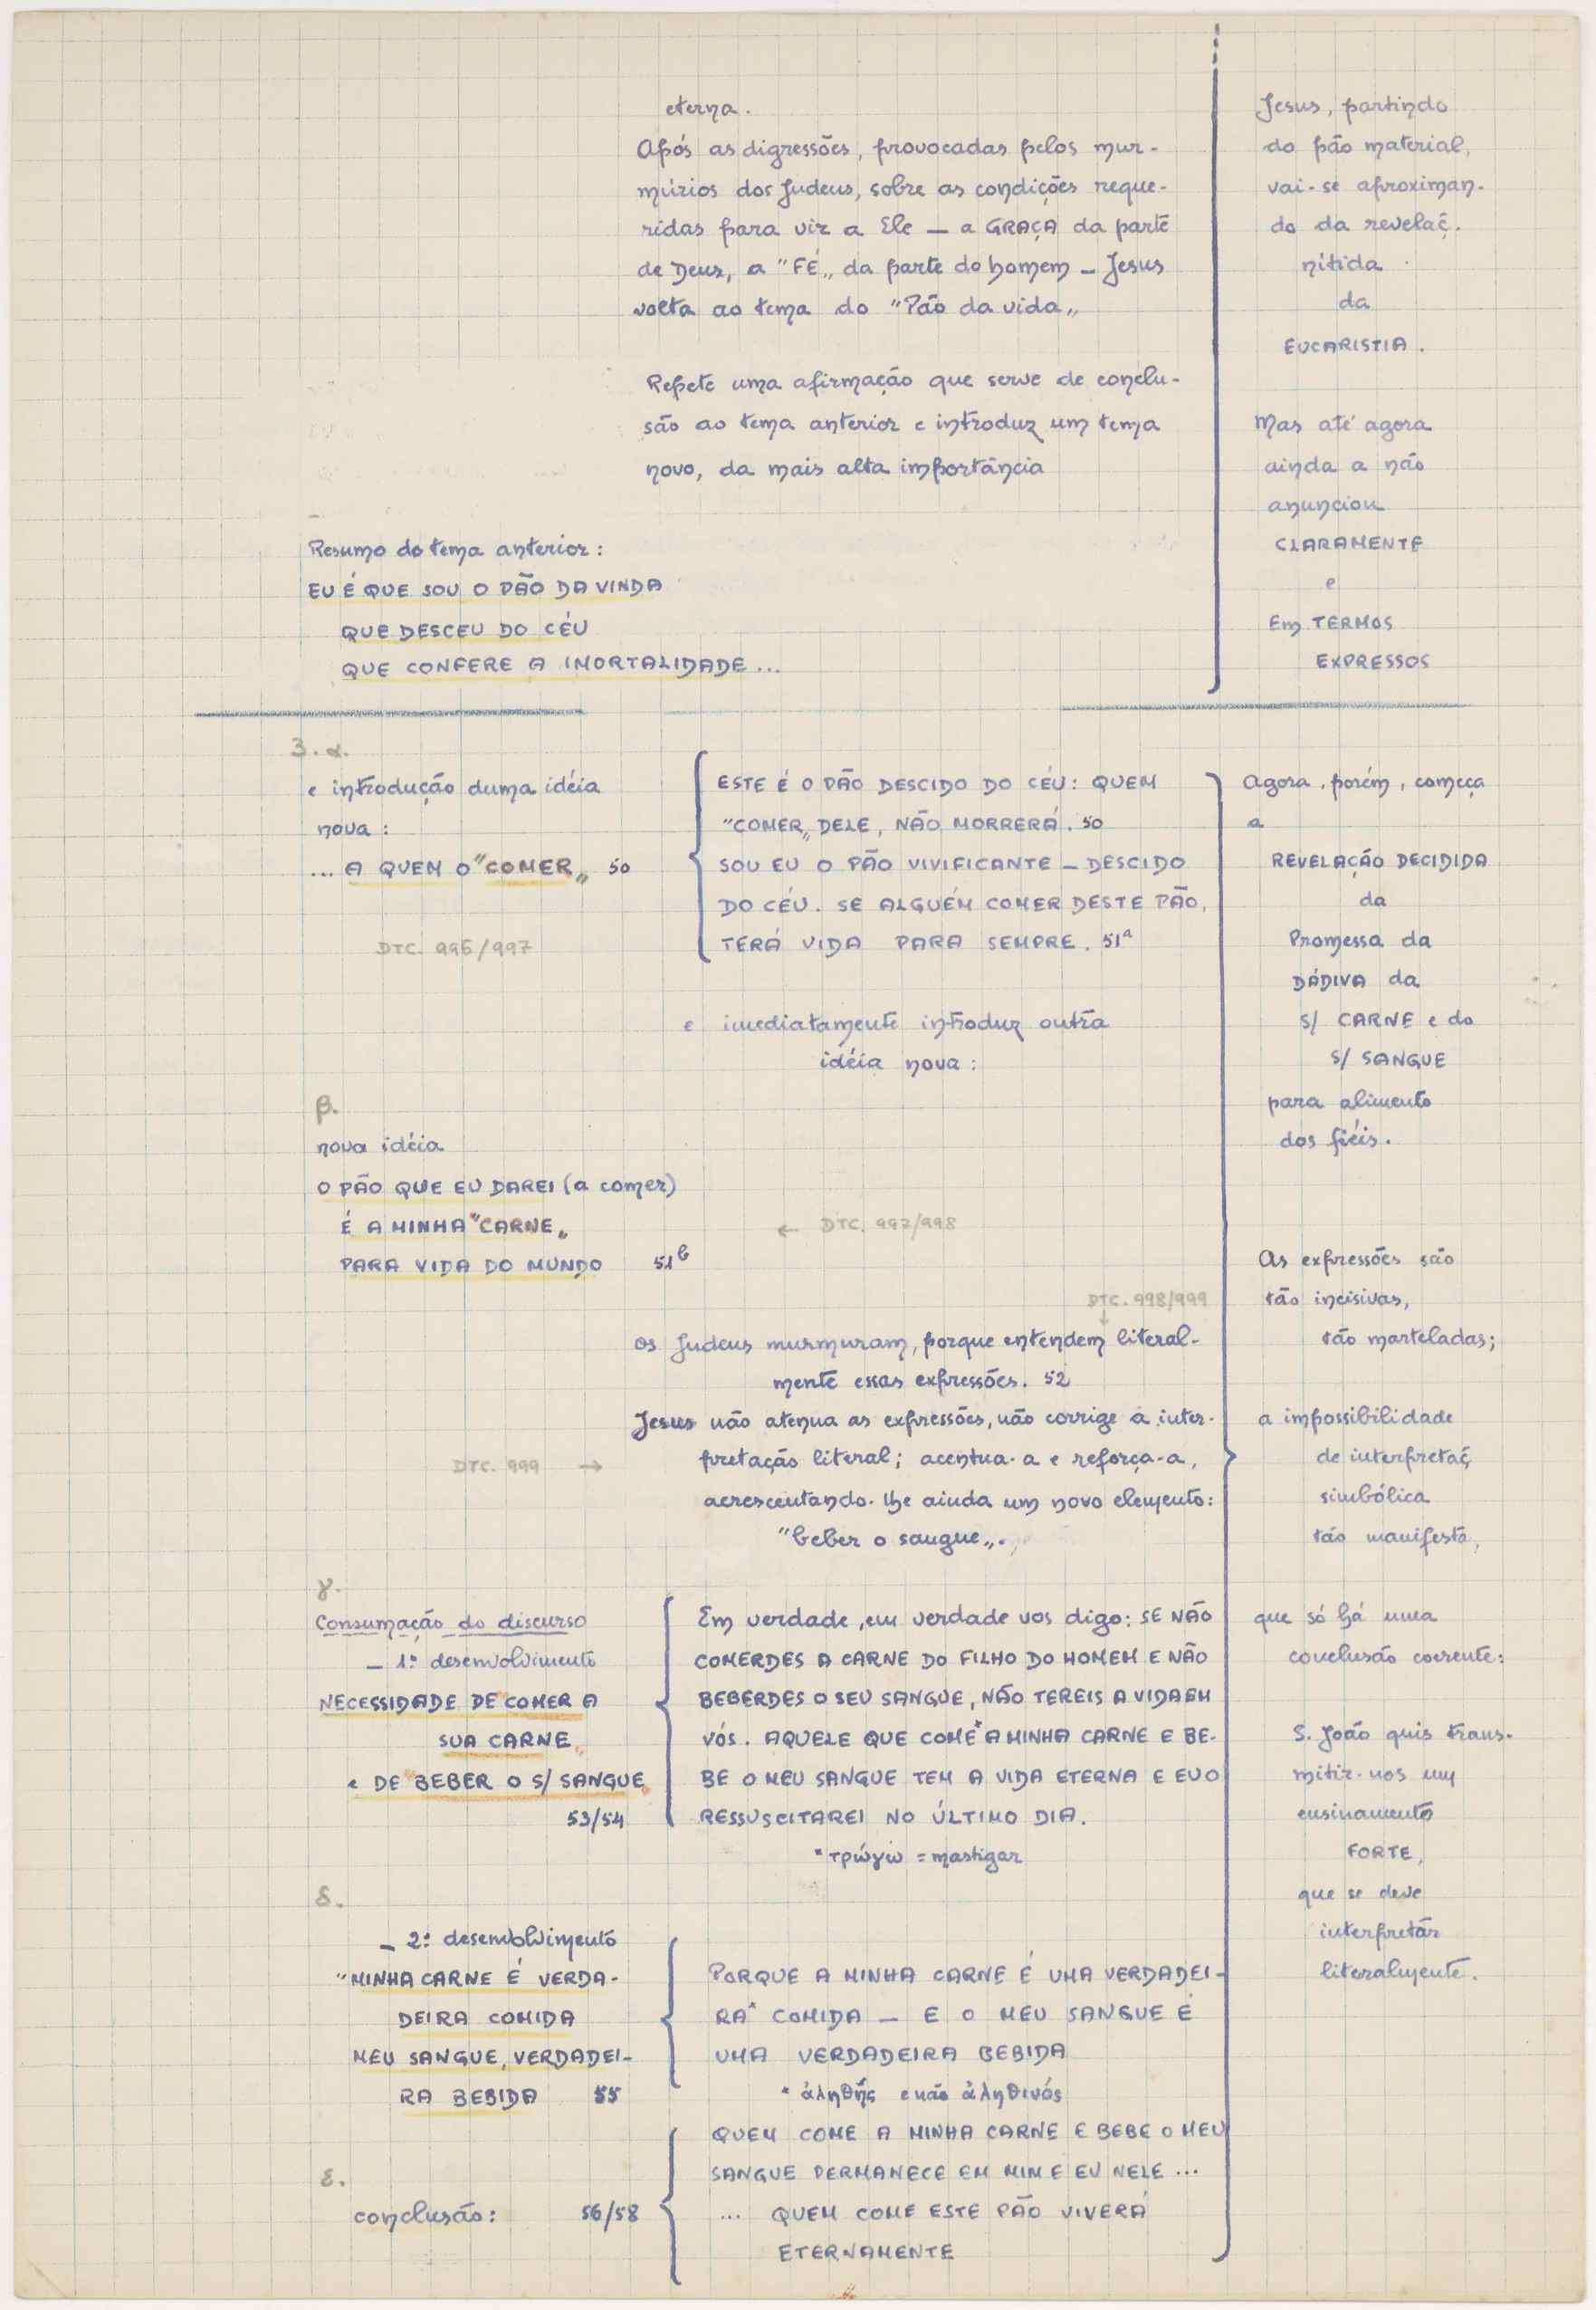 eterna.
Após as digressões, provocadas pelos mur-
múrios dos Judeus, sobre as condições reque-
ridas para vir a Ele — a GRAÇA da parte
de Deus, a "FÉ„ da parte do homem — Jesus
volta ao tema do "Pão da vida„
Repete uma afirmação que serve de conclu-
são ao tema anterior e introduz um tema
novo, da mais alta importância
Jesus, partindo
do pão material,
vai-se aproximan-
do da revelaç.
nítida
da
EUCARISTIA.
Mas até agora
ainda a não
anunciou
CLARAMENTE
e
Em TERMOS
EXPRESSOS
Resumo do tema anterior:
EU É QUE SOU O PÃO DA VINDA
QUE DESCEU DO CÉU
QUE CONFERE A IMORTALIDADE...
3. α.
e introdução duma idéia
nova:
... A QUEM O "COMER„ 50
DTC. 996/997
ESTE É O PÃO DESCIDO DO CÉU: QUEM
"COMER„ DELE, NÃO MORRERÁ. 50
SOU EU O PÃO VIVIFICANTE — DESCIDO
DO CÉU. SE ALGUÉM COMER DESTE PÃO,
TERÁ VIDA PARA SEMPRE. 51a
e imediatamente introduz outra
idéia nova:
Agora, porém, começa
a
REVELAÇÃO DECIDIDA
da
Promessa da
DÁDIVA da
S/ CARNE e do
S/ SANGUE
para alimento
dos fiéis.
β.
nova idéia
O PÃO QUE EU DAREI (a comer)
É A MINHA "CARNE„
PARA VIDA DO MUNDO 51b
← DTC. 997/998
DTC. 998/999
↓
Os Judeus murmuram, porque entendem literal-
mente essas expressões. 52
Jesus não atenua as expressões, não corrige a inter-
pretação literal; acentua-a e reforça-a,
acrescentando-lhe ainda um novo elemento:
"beber o sangue„.
DTC. 999 →
As expressões são
tão incisivas,
tão marteladas;
a impossibilidade
de interpretaç.
simbólica
tão manifesta,
que só há uma
conclusão coerente:
S. João quis trans-
mitir-nos um
ensinamento
FORTE,
que se deve
interpretar
literalmente.
γ.
Consumação do discurso
— 1º desenvolvimento
NECESSIDADE DE "COMER A
SUA CARNE„
e DE "BEBER O S/ SANGUE„
53/54
Em verdade, em verdade vos digo: SE NÃO
COMERDES A CARNE DO FILHO DO HOMEM E NÃO
BEBERDES O SEU SANGUE, NÃO TEREIS A VIDA EM
VÓS. AQUELE QUE COME* A MINHA CARNE E BE-
BE O MEU SANGUE TEM A VIDA ETERNA E EU O
RESSUSCITAREI NO ÚLTIMO DIA.
* τρώγω = mastigar
δ.
— 2º desenvolvimento
"MINHA CARNE É VERDA-
DEIRA COMIDA
MEU SANGUE, VERDADEI-
RA BEBIDA 55
PORQUE A MINHA CARNE É UMA VERDADEI-
RA* COMIDA — E O MEU SANGUE É
UMA VERDADEIRA BEBIDA
* ἀληθής e não ἀληθινός
ε.
conclusão: 56/58
QUEM COME A MINHA CARNE E BEBE O MEU
SANGUE PERMANECE EM MIM E EU NELE ...
... QUEM COME ESTE PÃO VIVERÁ
ETERNAMENTE